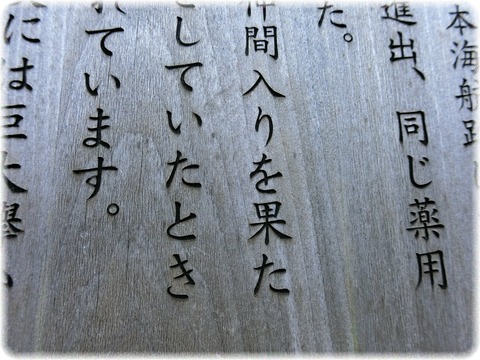 本海航路
進出、同じ薬用
た。
仲間入りを果た
としていたとき
れています。
には巨大